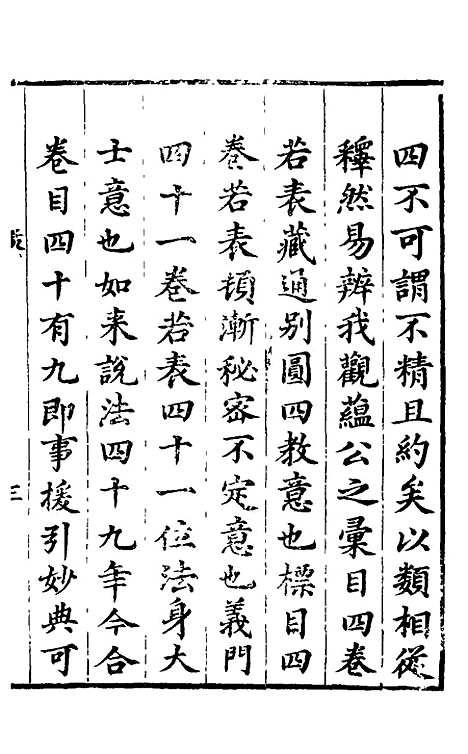 四不可謂不精且約矣以類相從
釋然易辨我觀蘊公之彙目四卷
若表藏通別圓四教意也標目四
卷若表頓漸秘密不定意也義門
四十一卷若表四十一位法身大
士意也如来說法四十九年今合
卷目四十有九即事援引妙典可
三